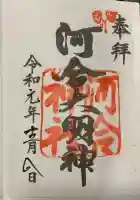 奉拝
河合大明神
河合神社
令和元年十二月八日